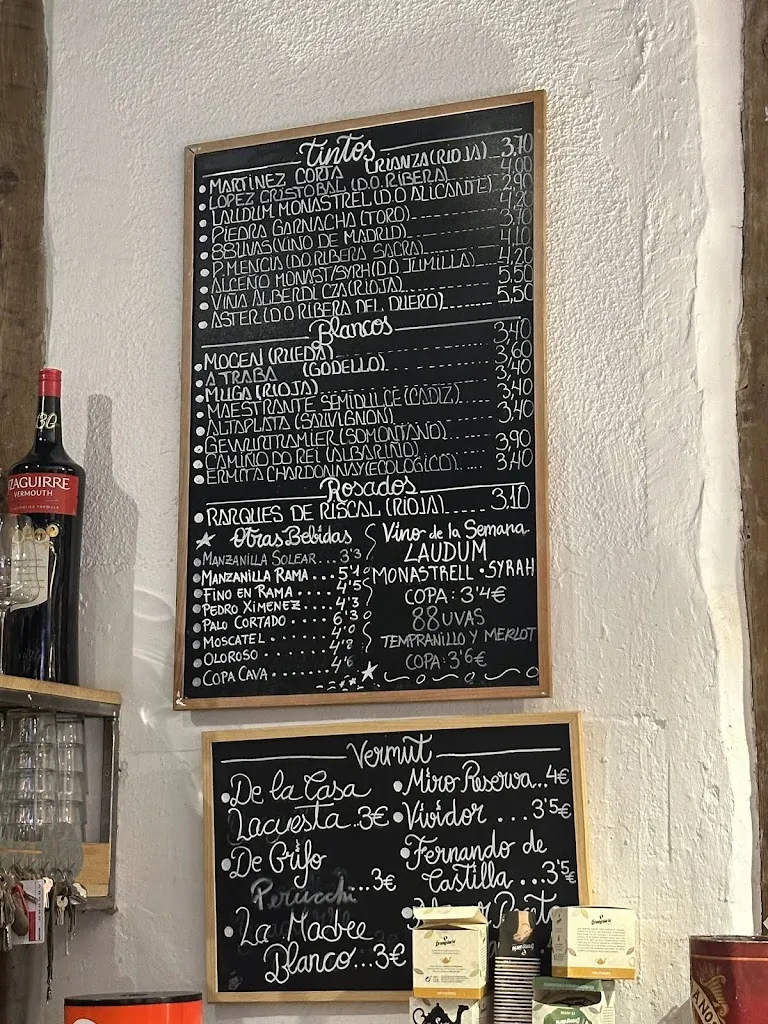 Tintos
MARTINEZ CORTA CRIANZA (RIOJA) 3,70
LOPEZ CRISTOBAL (D.O. RIBERA) 4,00
LAUDUM MONASTREL (D.O ALICANTE) 2,90
PIEDRA GARNACHA (TORO) 4,20
88UVAS (VINO DE MADRID) 3,70
P.MENCIA (DO RIBERA SACRA) 4,10
ALCEÑO MONAST/SYRH (D.O JUMILLA) 4,20
VIÑA ALBERDI CZA (RIOJA) 5,50
ASTER (D.O RIBERA DEL DUERO) 5,50
Blancos
MOCEN (RUEDA) 3,40
A TRABA (GODELLO) 3,60
MUGA (RIOJA) 3,40
MAESTRANTE SEMIDULCE (CADIZ) 3,40
ALTAPLATA (SAUVIGNON) 3,40
GEWURTRAMIER (SOMONTANO)
CAMIÑO DO REI (ALBARIÑO) 3,90
ERMITA CHARDONNAY (ECOLOGICO) 3,40
Rosados
RARQUES DE RISCAL (RIOJA) 3,10
Otras Bebidas
MANZANILLA SOLEAR... 3'3
MANZANILLA RAMA.... 5'1
FINO EN RAMA.... 4'5
PEDRO XIMENEZ.... 4'3
PALO CORTADO.... 6'3
MOSCATEL...... 4'0
OLOROSO...... 4'8
COPA CAVA...... 4'6
Vino de la Semana
LAUDUM
MONASTRELL · SYRAH
COPA: 3'4€
88UVAS
TEMPRANILLO Y MERLOT
COPA: 3'6€
Vermut
De la Casa
Lacuesta..3€
De Grifo
Perucchi ...3€
La Madre
Blanco...3€
Miro Reserva..4€
Vividor ...3'5€
Fernando de
Castilla...3'5€
ZAGUIRRE
VERMOUTH